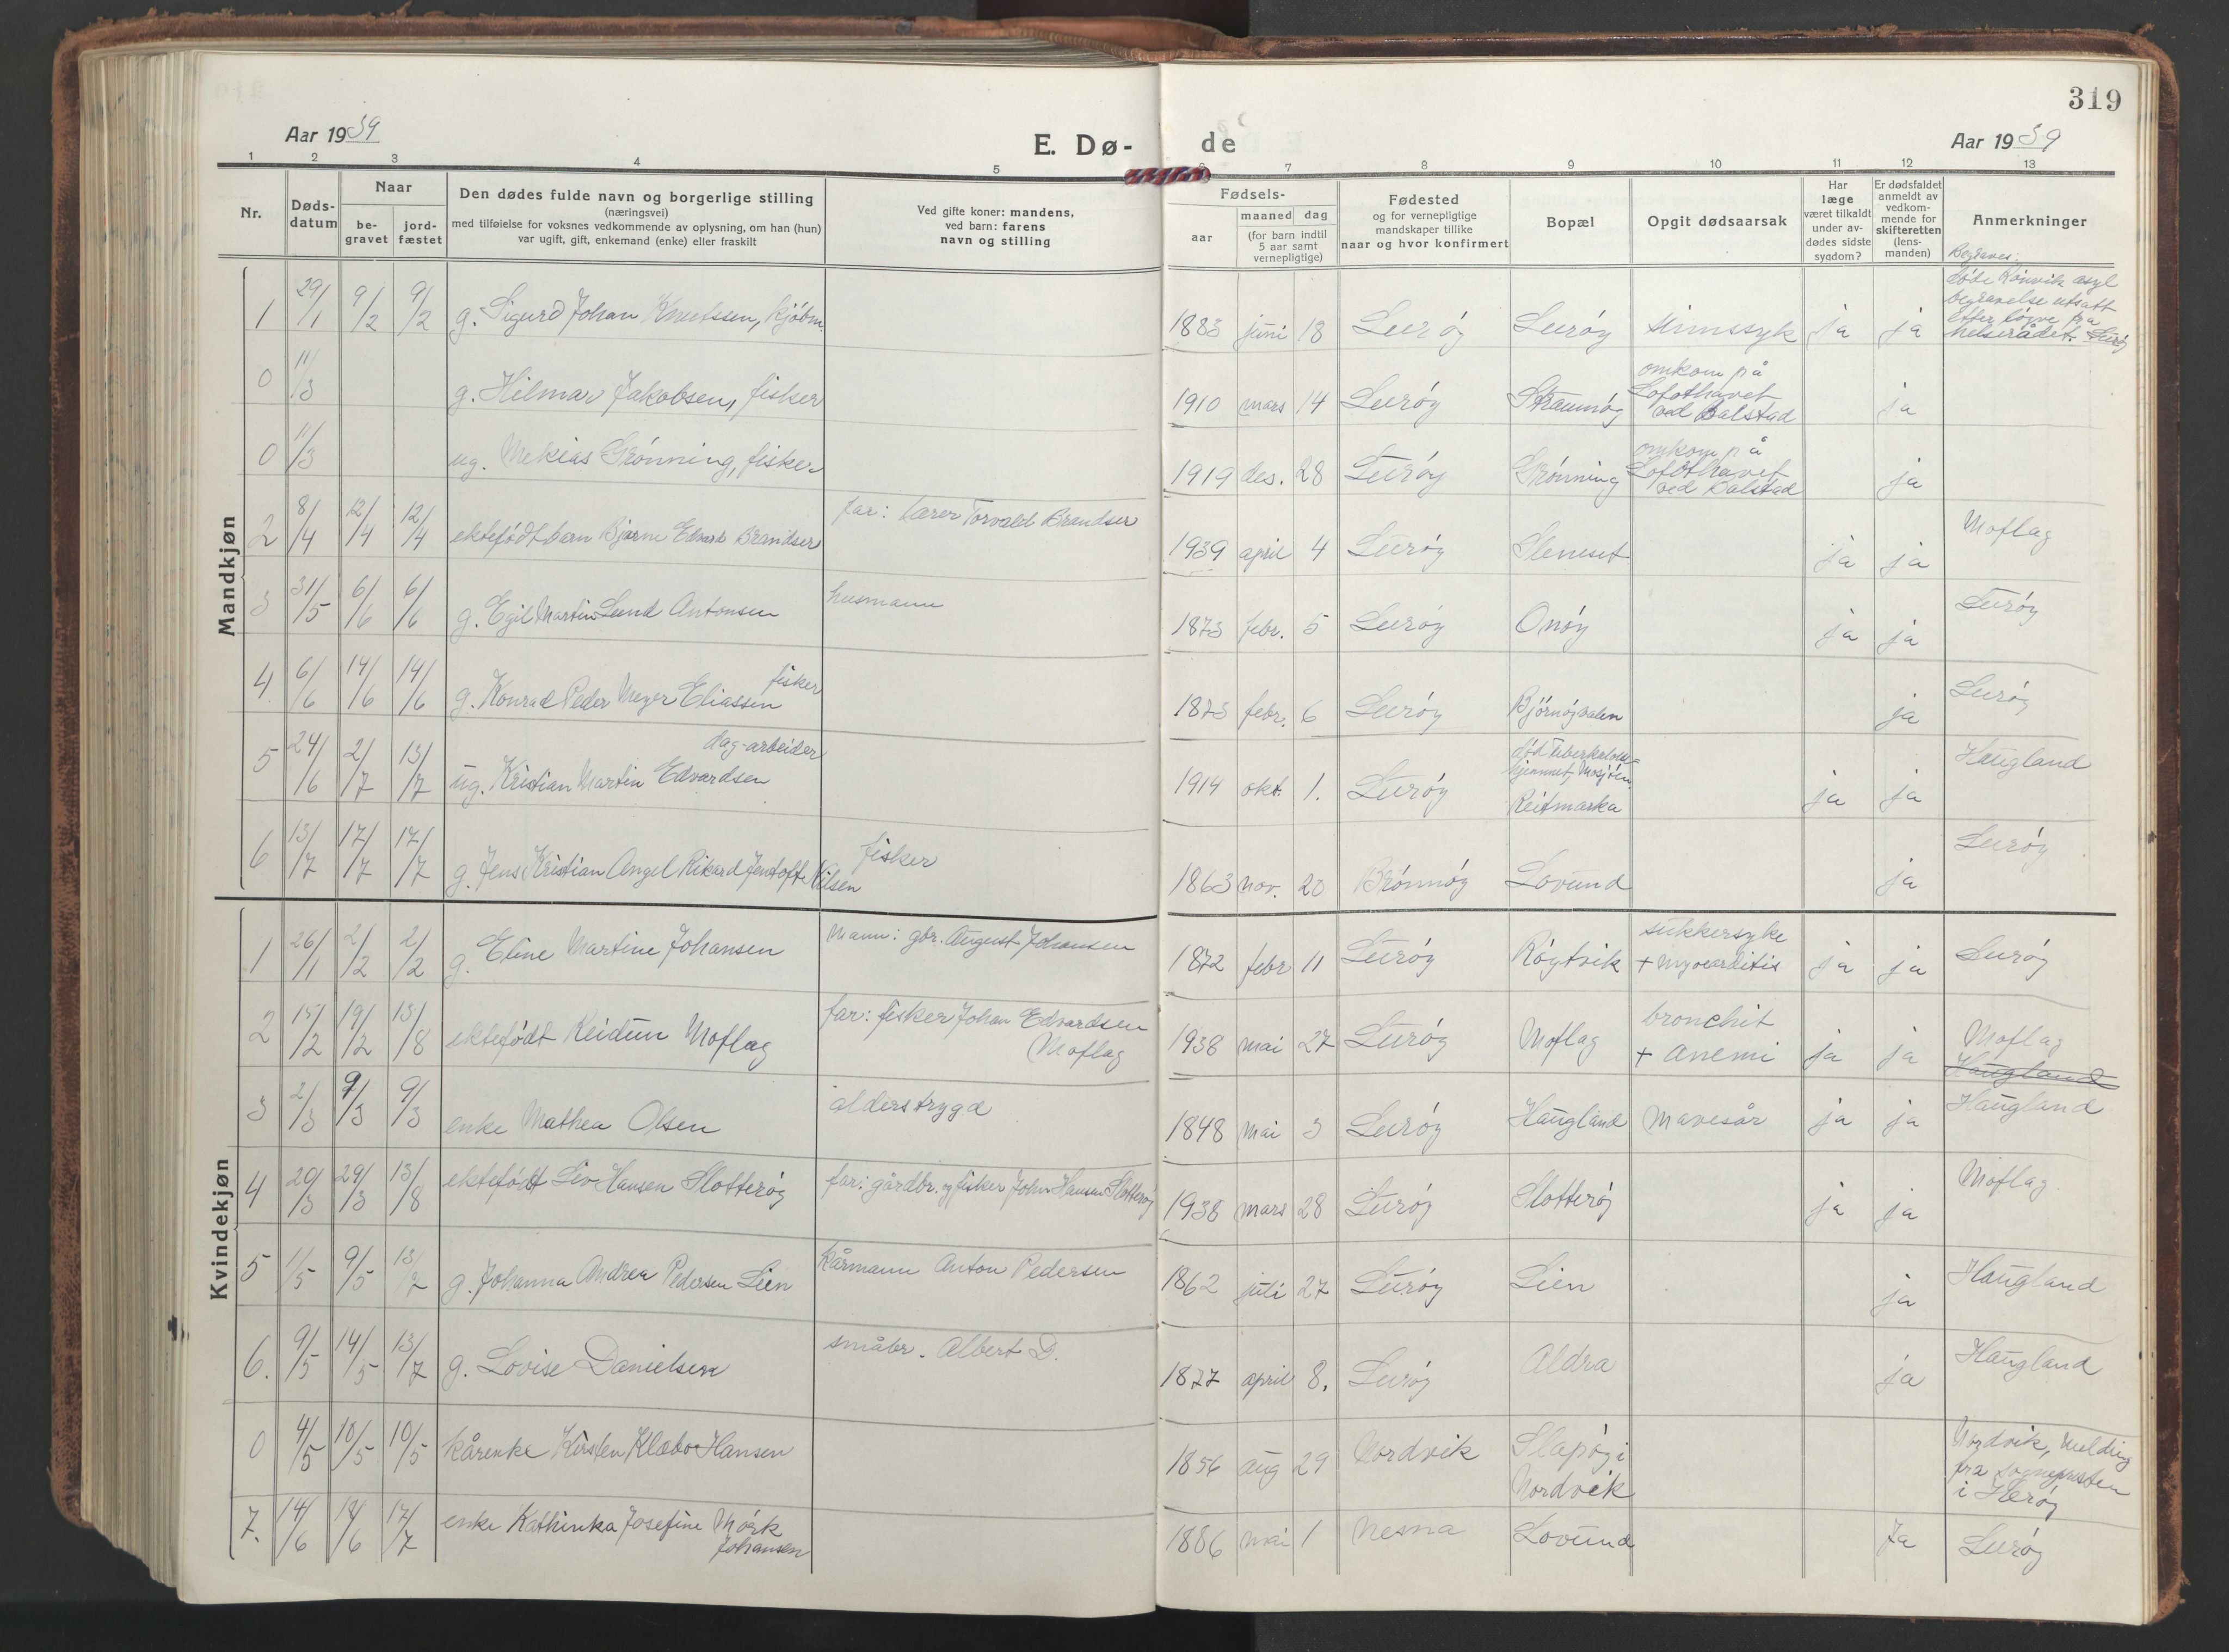 319
Aar 1939
E. Dø-
de
Aar 1939
1 2 3 4 5 6 7 8 9 10 11 12 13
Nr.
Døds-
datum
Naar
be-
gravet
jord-
fæstet
Den dødes fulde navn og borgerlige stilling
(næringsvei)
med tilføielse for voksnes vedkommende av oplysning, om han (hun)
var ugift, gift, enkemand (enke) eller fraskilt
Ved gifte koner: mandens,
ved barn: farens
navn og stilling
Fødsels-
aar
maaned dag
(for barn indtil
5 aar samt
vernepligtige)
Fødested
og for vernepligtige
mandskaper tillike
naar og hvor konfirmert
Bopæl
Opgit dødsaarsak
Har
læge
været tilkaldt
under av-
dødes sidste
sygdom?
Er dødsfaldet
anmeldt av
vedkom-
mende for
skifteretten
(lens-
manden)
Anmerkninger
Begraves:
Mandkjøn
1 29/1 9/2 9/2 g. Sigurd Johan Knutssen, kjøbm. 1883 juni 18 Lurøy Lurøy sinnssyk ja ja
døde Rønvik asyl
begravelse utsatt
etter løyve fra
helserådet. Lurøy
0 11/3 g. Hilmar Jakobsen, fisker 1910 mars 14 Lurøy Straumøy omkom på
Lofothavet
ved Balstad ja
0 11/3 ug. Mekias Grønning, fisker 1919 des. 28 Lurøy Grønning omkom på
Lofothavet
ved Balstad ja
2 8/4 12/4 12/4 ektefødt barn Bjarne Edvard Brandser far: lærer Torvald Brandser 1939 april 4 Lurøy Sleneset ja ja Moflag
3 31/5 6/6 6/6 g. Egil Martin Lund Antonsen husmann 1873 febr. 5 Lurøy Onøy ja ja Lurøy
4. 6/6 14/6 14/6 g. Konrad Peder Meyer Eliassen fisker 1873 febr. 6 Lurøy Bjørnøyvalen ja Lurøy
5 24/6 2/7 13/7 ug. Kristian Martin Edvardsen dag-arbeider 1914 okt. 1. Lurøy død Tuberkulose-
hjemmet, Mosjøen
Reitmarka ja ja Haugland
6 13/7 17/7 17/7 g. Jens Kristian Angel Rikard Jentoft Nilsen fisker 1863 nov. 20 Brønnøy Lovund ja Lurøy
Kvindekjøn
1 26/1 2/2 2/2 g. Eline Martine Johansen Mann: gbr. August Johansen 1872 febr 11 Lurøy Røytvik sukkersyke
+ myocarditis ja ja Lurøy
2 15/2 19/2 13/8 ektefødt Reidun Moflag far: fisker Johan Edvardsen
Moflag 1938 mai 27 Lurøy Moflag bronchit
+ anemi ja ja Moflag
Haugland
3 2/3 9/3 9/3 enke Mathea Olsen alderstrygd 1848 mai 3 Lurøy Haugland Mavesår ja ja Haugland
4 20/3 29/3 13/8 ektefødt Liv Hansen Slotterøy far: gårdbr. og fisker John Hansen Slotterøy 1938 mars 28 Lurøy Slotterøy ja ja Moflag
5 1/5 9/5 13/7 g. Johanna Andrea Pedersen Lien kårmann Anton Pedersen 1862 juli 27 Lurøy Lien ja Haugland
6. 9/5 14/5 13/7 g. Lovise Danielsen småbr. Albert D. 1877 april 8. Lurøy Aldra ja Haugland
0 4/5 10/5 10/5 kårenke Kirsten Klæboe Hansen 1856 aug 29 Nordvik Slapøy i
Nordvik Nordvik, melding
fra sognepresten
i Herøy
7. 14/6 18/6 17/7 enke Kathinka Josefine Mørk
Johansen 1886 mai 1 Nesna Lovund Ja Lurøy